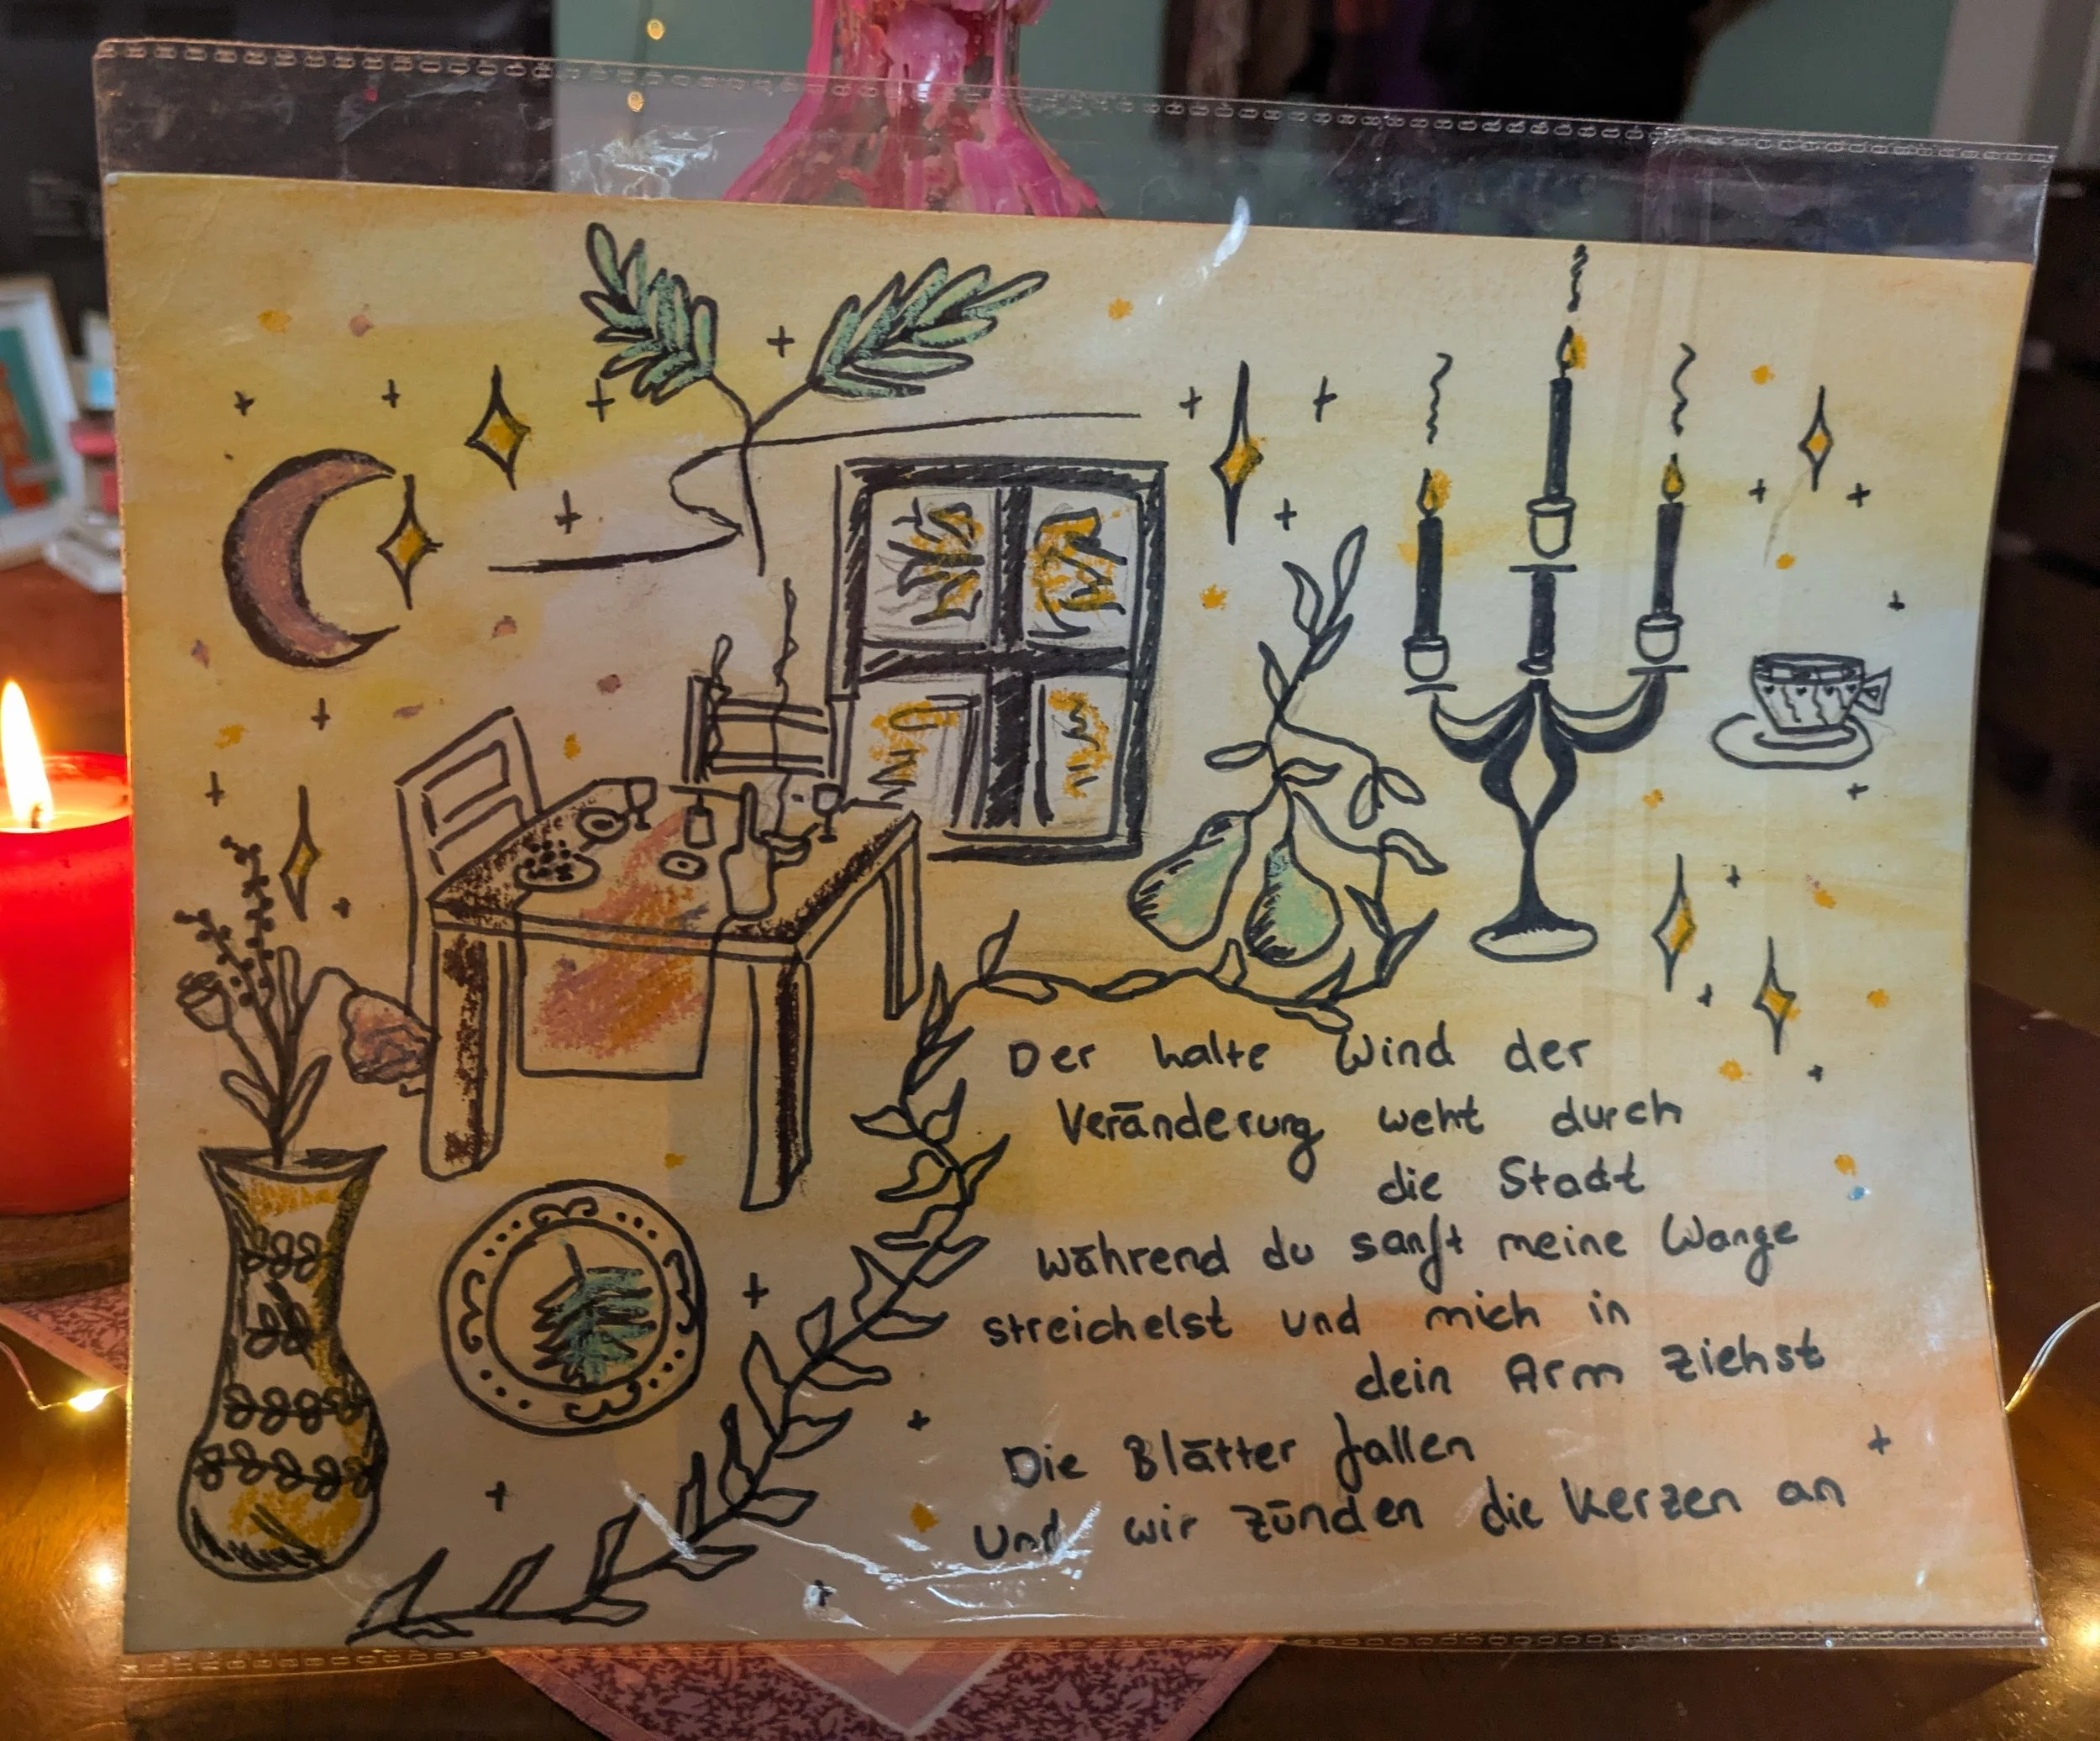 Der kalte Wind der
Veränderung weht durch
die Stadt
während du sanft meine Wange
streichelst und mich in
dein Arm ziehst
Die Blätter fallen
Und wir zünden die Kerzen an